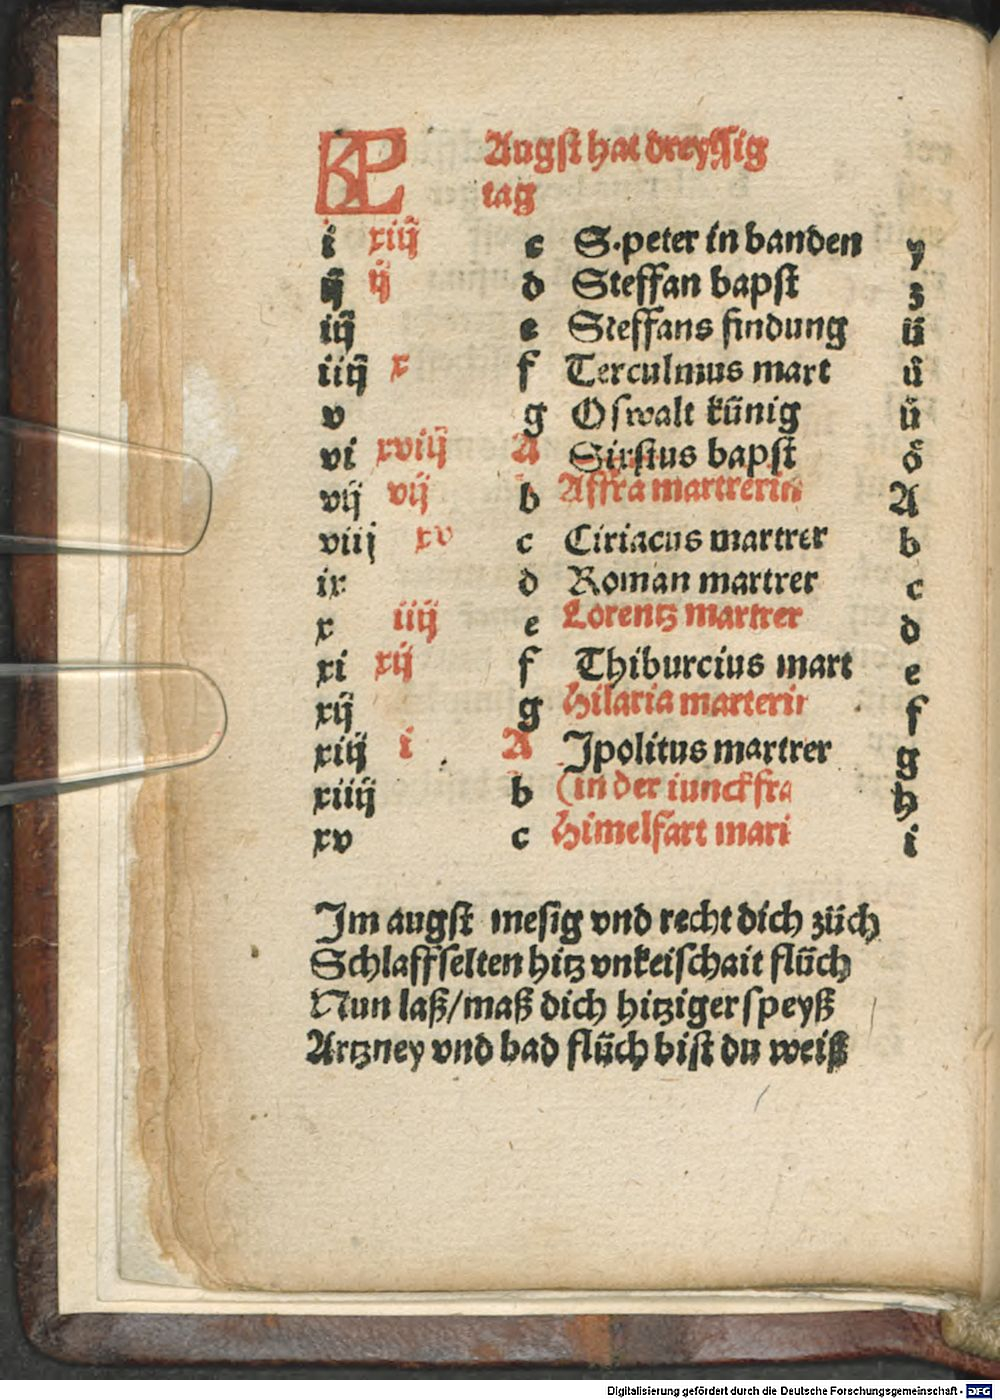 KL Augst hat dreyssig
tag
i xiij c S. peter in banden y
ij ij d Steffan bapst z
iij e Steffans findung ü
iiij x f Terculinus mart
v g Oswalt künig
vi xviij A Sixstus bapst
vij vij b Affra martrerin A
viij xv c Ciriacus martrer b
ix d Roman martrer c
x iiij e Lorentz martrer d
xi xij f Thiburcius mart e
xij g Hilaria marterin f
xiij i A Ipolitus martrer g
xiiij b (in der iunckfra h
xv c Himelfart mari i
Im augst mesig vnd recht dich züch
Schlaff selten hitz vnkeischait flüch
Nun laß/maß dich hitziger speyß
Artzney vnd bad flüch bist du weiß
Digitalisierung gefördert durch die Deutsche Forschungsgemeinschaft - DFG